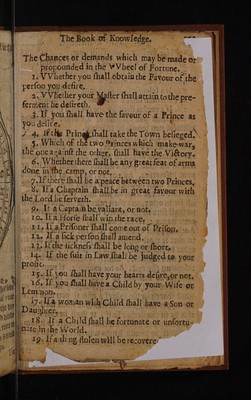 The Book of Knowledge.
The Chances or demands which may be made or
propounded in the VVheel of Fortune.
1. VVhether you shall obtain the Favour of the
person you desire.
2. VVhether your Master shall attain to the pre-
ferment he desireth.
3. If you shall have the favour of a Prince as
you desire.
4. If the Prince shall take the Town besieged.
5. Which of the two Princes which make war,
the one against the other, shall have the Victory.
6. Whether there shall be any great feat of arms
done in the camp, or not.
7. If there shall be a peace between two Princes,
8. If a Chaplain shall be in great favour with
the Lord he serveth.
9. If a Captain be valiant, or not.
10. If a Horse shall win the race.
11. If a Prisoner shall come out of Prison.
12. If a sick person shall amend.
13. If the sickness shall be long or short.
14. If the suit in Law shall be judged to your
profit.
15. If you shall have your hearts desire, or not.
16. If you shall have a Child by your Wife or
Lemmon.
17. If a woman with Child shall have a Son or
Daughter.
18. If a Child shall be fortunate or unfortu-
nate in the World.
19. If a thing stolen will be recovere